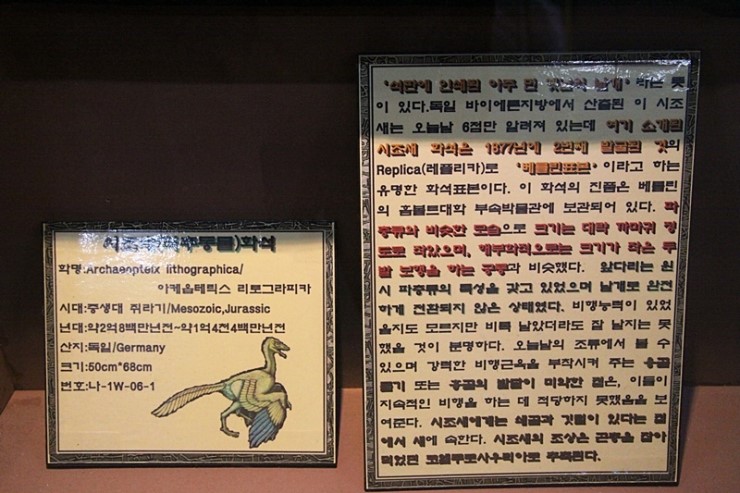 시조새(척추동물)화석
학명:Archaeopteix lithographica/
아케옵테릭스 리토그라피카
시대:중생대 쥐라기/Mesozoic,Jurassic
년대:약2억8백만년전~약1억4천4백만년전
산지:독일/Germany
크기:50cm*68cm
번호:나-1W-06-1
'석판에 인쇄된 아주 먼 옛날의 날개' 라는 뜻
이 있다.독일 바이에른지방에서 산출된 이 시조
새는 오늘날 6점만 알려져 있는데 여기 소개된
시조새 화석은 1877년에 2번째 발굴된 것의
Replica(레플리카)로 '베를린표본' 이라고 하는
유명한 화석표본이다. 이 화석의 진품은 베를린
의 훔볼트대학 부속박물관에 보관되어 있다. 파
충류와 비슷한 모습으로 크기는 대략 까마귀 정
도로 작았으며, 해부학적으로는 크기가 작은 두
발 보행을 하는 공룡과 비슷했다. 앞다리는 원
시 파충류의 특성을 갖고 있었으며 날개로 완전
하게 전환되지 않은 상태였다. 비행능력이 있었
을지도 모르지만 비록 날았더라도 잘 날지는 못
했을 것이 분명하다. 오늘날의 조류에서 볼 수
있으며 강력한 비행근육을 부착시켜 주는 용골
돌기 또는 흉골의 발달이 미약한 점은, 이들이
지속적인 비행을 하는 데 적당하지 못했음을 보
여준다. 시조새에게는 쇄골과 깃털이 있다는 점
에서 새에 속한다. 시조새의 조상은 곤충을 잡아
먹었던 코엘루로사우리아로 추측된다.